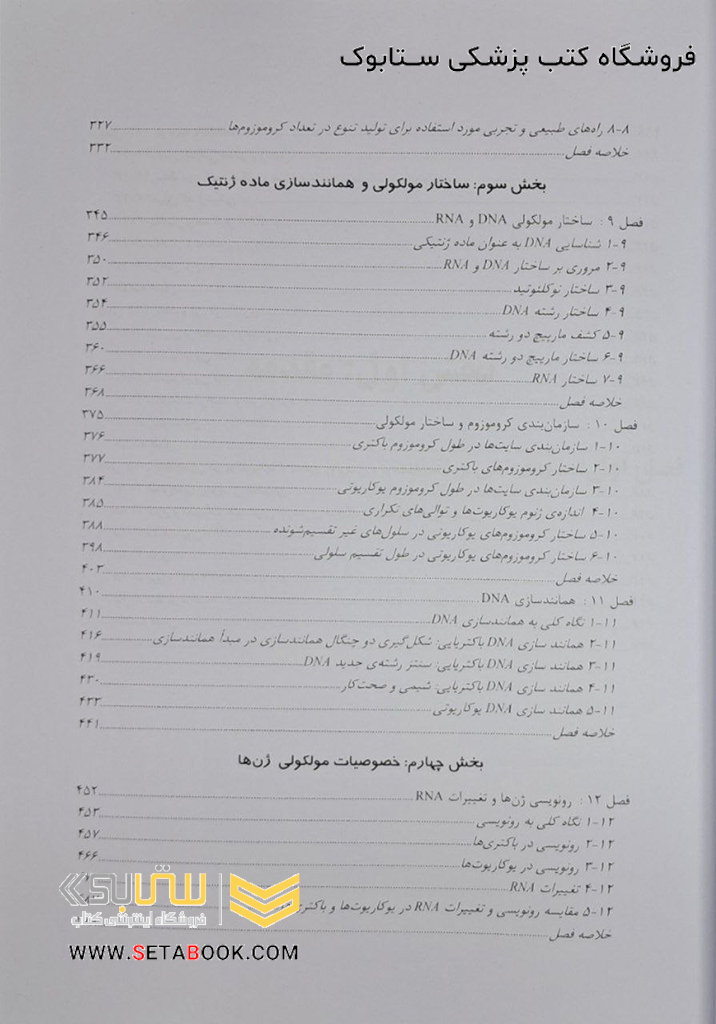 فروشگاه کتب پزشکی ستابوک
۸-۸ راه‌های طبیعی و تجربی مورد استفاده برای تولید تنوع در تعداد کروموزوم‌ها ۳۲۷
خلاصه فصل ۳۳۲
بخش سوم: ساختار مولکولی و همانندسازی ماده ژنتیک
فصل ۹ : ساختار مولکولی DNA و RNA ۳۴۵
۹-۱ شناسایی DNA به عنوان ماده ژنتیکی ۳۴۶
۹-۲ مروری بر ساختار DNA و RNA ۳۵۰
۹-۳ ساختار نوکلئوتید ۳۵۲
۹-۴ ساختار رشته DNA ۳۵۴
۹-۵ کشف مارپیچ دو رشته ۳۵۵
۹-۶ ساختار مارپیچ دو رشته DNA ۳۶۰
۹-۷ ساختار RNA ۳۶۶
خلاصه فصل ۳۶۸
فصل ۱۰ : سازمان‌بندی کروموزوم و ساختار مولکولی ۳۷۵
۱۰-۱ سازمان‌بندی سایت‌ها در طول کروموزوم باکتری ۳۷۶
۱۰-۲ ساختار کروموزوم‌های باکتری ۳۷۷
۱۰-۳ سازمان‌بندی سایت‌ها در طول کروموزوم یوکاریوتی ۳۸۴
۱۰-۴ اندازه‌ی ژنوم یوکاریوت‌ها و توالی‌های تکراری ۳۸۵
۱۰-۵ ساختار کروموزوم‌های یوکاریوتی در سلول‌های غیر تقسیم‌شونده ۳۸۸
۱۰-۶ ساختار کروموزوم‌های یوکاریوتی در طول تقسیم سلولی ۳۹۸
خلاصه فصل ۴۰۳
فصل ۱۱ : همانندسازی DNA ۴۱۰
۱۱-۱ نگاه کلی به همانندسازی DNA ۴۱۱
۱۱-۲ همانند سازی DNA باکتریایی: شکل‌گیری دو چنگال همانندسازی در مبدأ همانندسازی ۴۱۶
۱۱-۳ همانند سازی DNA باکتریایی: سنتز رشته‌ی جدید DNA ۴۱۹
۱۱-۴ همانند سازی DNA باکتریایی: شیمی و صحت‌کار ۴۳۰
۱۱-۵ همانند سازی DNA یوکاریوتی ۴۳۳
خلاصه فصل ۴۴۱
بخش چهارم: خصوصیات مولکولی ژن‌ها
فصل ۱۲ : رونویسی ژن‌ها و تغییرات RNA ۴۵۲
۱۲-۱ نگاه کلی به رونویسی ۴۵۳
۱۲-۲ رونویسی در باکتری‌ها ۴۵۷
۱۲-۳ رونویسی در یوکاریوت‌ها ۴۶۶
۱۲-۴ تغییرات RNA
۱۲-۵ مقایسه رونویسی و تغییرات RNA در یوکاریوت‌ها و باکتری
خلاصه فصل
ستابوک
فروشگاه اینترنتی کتاب
WWW.SETABOOK.COM